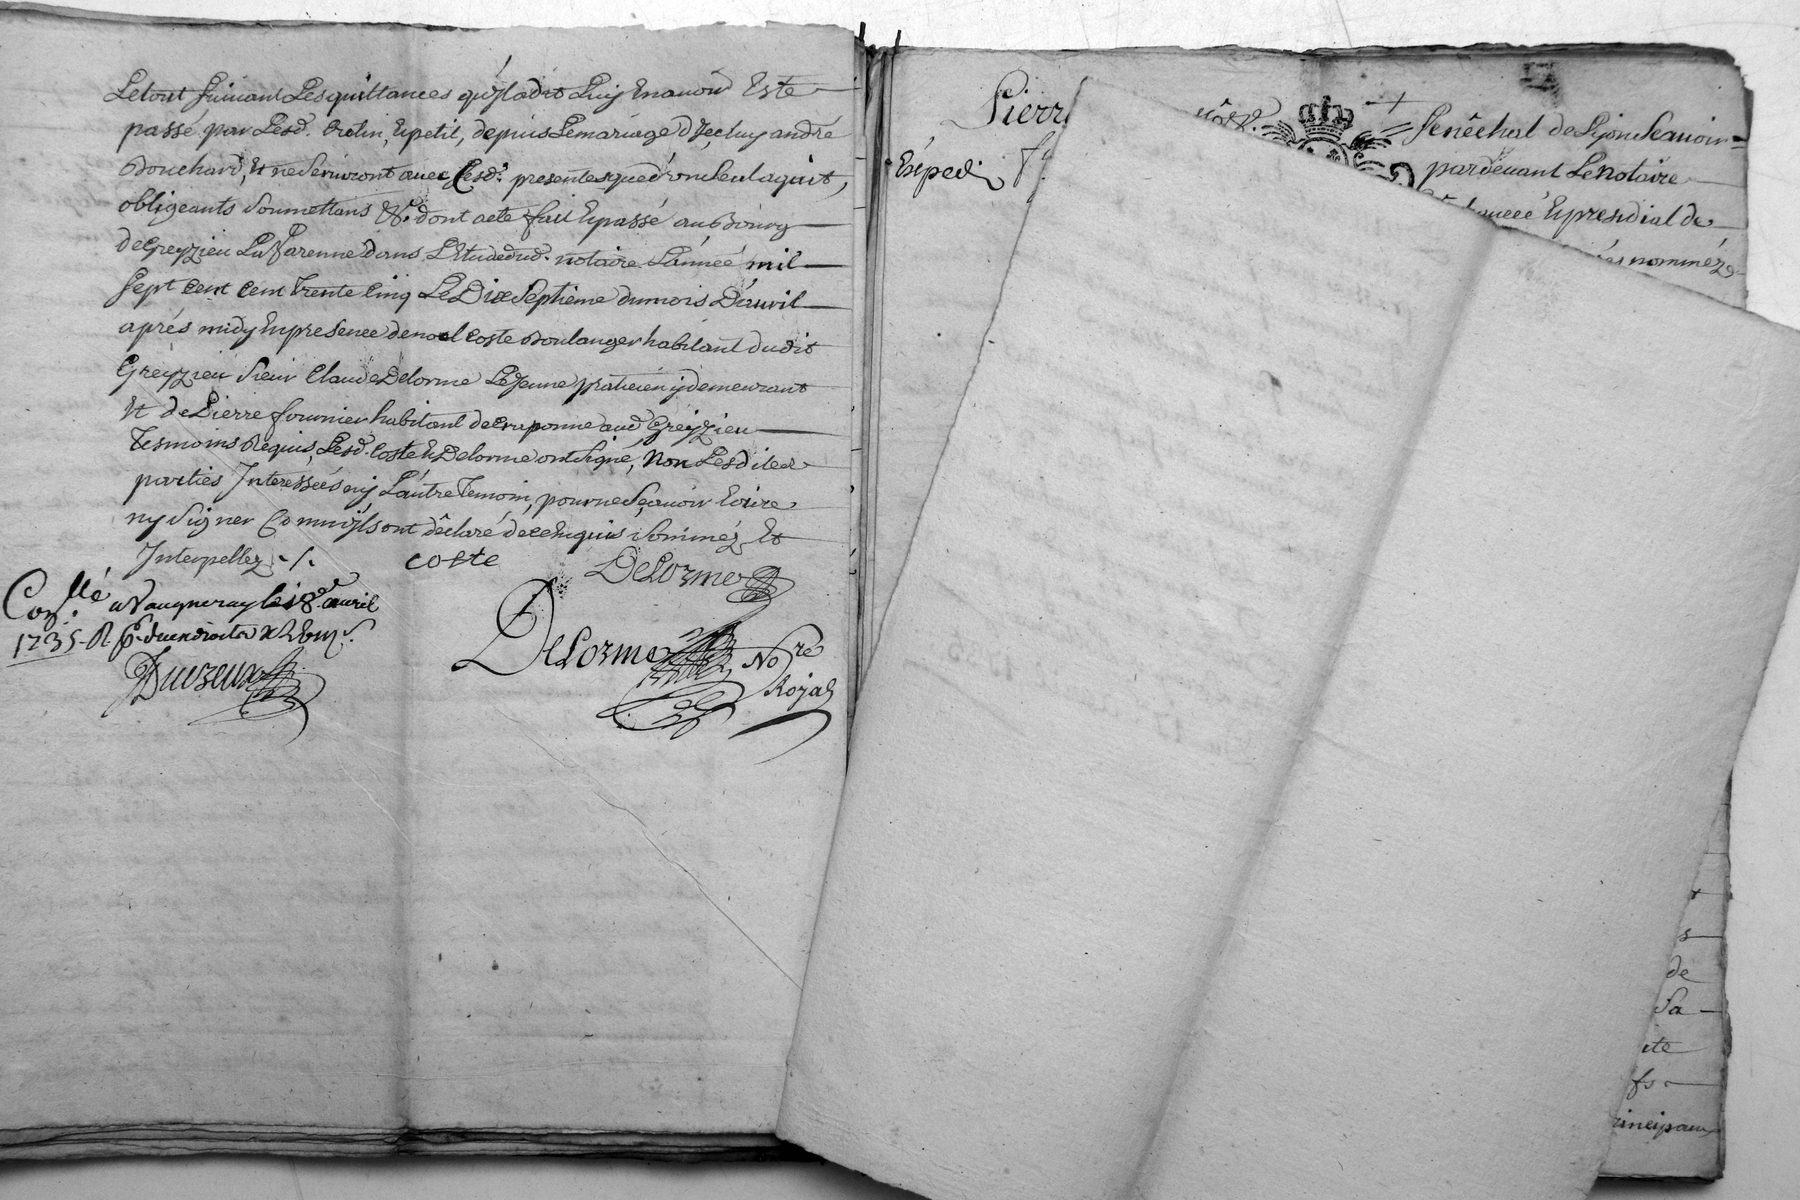 Letout suivant Les quittances qu'il a dit Luy En avoir Esté
passé par Lesd. Et petit, depuis Le mariage d'Jceluy andré
Bouchard, Et ne serviront avec Lesd. presentes que d'un seul aquit,
obligeants Soumettans &c. dont acte fait Et passé au Bourg
de Greyzieu La Varenne dans L'Etude dud. notaire L'année mil
Sept Cent Cent Trente Cinq Le Dix Septieme du mois D'avril
aprés midy En presence de noel Coste Boulanger habitant dudit
Greyzieu Sieur Claude Delorme Le Jeune praticien y demeurant
Et de Pierre fournier habitant de Craponne aud. Greyzieu
Tesmoins Requis, Lesd. Coste Et Delorme ont Signé, Non Lesdites
parties Interessées ny L'autre Temoin, pour ne Sçavoir Ecrire
ny Signer Comm'jls ont déclaré de ce Enquis Sommés Et
Interpellez ./.
coste
DeLorme
Con.llé a Vaugneray le 18e. avril
1735. R
DeLorme No.re
Royal
Pierr
Expedi
Senêchal de Lyon Scavoir
pardevant Le notaire
Et presidial de
nommés
s
de
Sa
ite
fs
rincipaux